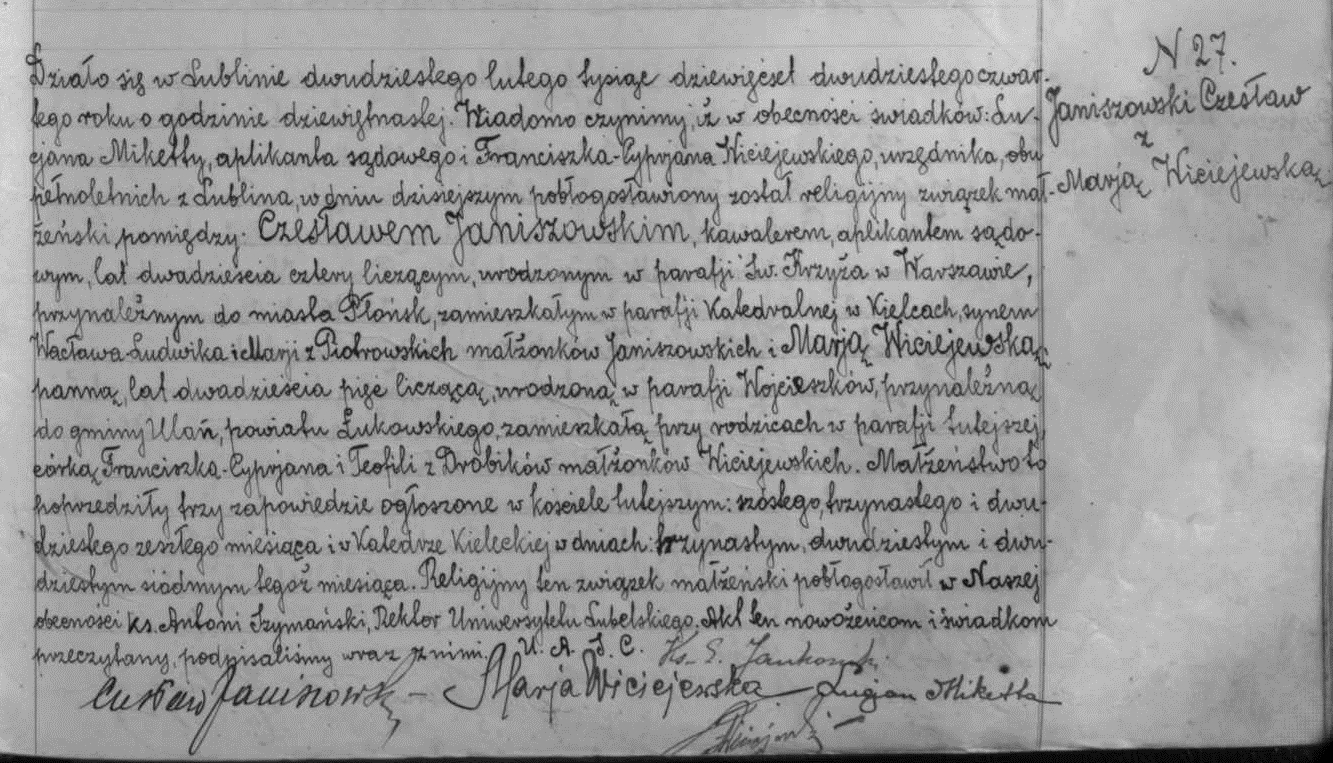 N 27.
Janiszowski Czesław
z
Marją Wiciejewską
Działo się w Lublinie dwudziestego lutego tysiąc dziewięćset dwudziestego czwar-
tego roku o godzinie dziewiętnastej. Wiadomo czynimy, iż w obecności świadków: Lu-
cjana Miketty, aplikanta sądowego i Franciszka-Cyprjana Wiciejewskiego, urzędnika, obu
pełnoletnich z Lublina, w dniu dzisiejszym pobłogosławiony został religijny związek mał-
żeński pomiędzy: Czesławem Janiszowskim, kawalerem, aplikantem sądo-
wym, lat dwadzieścia cztery liczącym, urodzonym w parafji Św. Krzyża w Warszawie,
przynależnym do miasta Płońsk, zamieszkałym w parafji Katedralnej w Kielcach, synem
Wacława-Ludwika i Marji z Piotrowskich małżonków Janiszowskich i Marją Wiciejewską,
panną, lat dwadzieścia pięć liczącą, urodzoną w parafji Wojcieszków, przynależną
do gminy Ulan, powiatu Łukowskiego, zamieszkałą przy rodzicach w parafji tutejszej,
córką Franciszka-Cyprjana i Teofili z Drobików małżonków Wiciejewskich. Małżeństwo to
poprzedziły trzy zapowiedzie ogłoszone w kościele tutejszym: szóstego, trzynastego i dwu-
dziestego zeszłego miesiąca i w Katedrze Kieleckiej w dniach: trzynastym, dwudziestym i dwu-
dziestym siódmym tegoż miesiąca. Religijny ten związek małżeński pobłogosławił w Naszej
obecności ks. Antoni Szymański, Rektor Uniwersytetu Lubelskiego. Akt ten nowożeńcom i świadkom
przeczytany, podpisaliśmy wraz z nimi. U. A. S. C. Ks. E. Jankowski
Czesław Janiszowski – Marja Wiciejewska – Lucjan Miketta